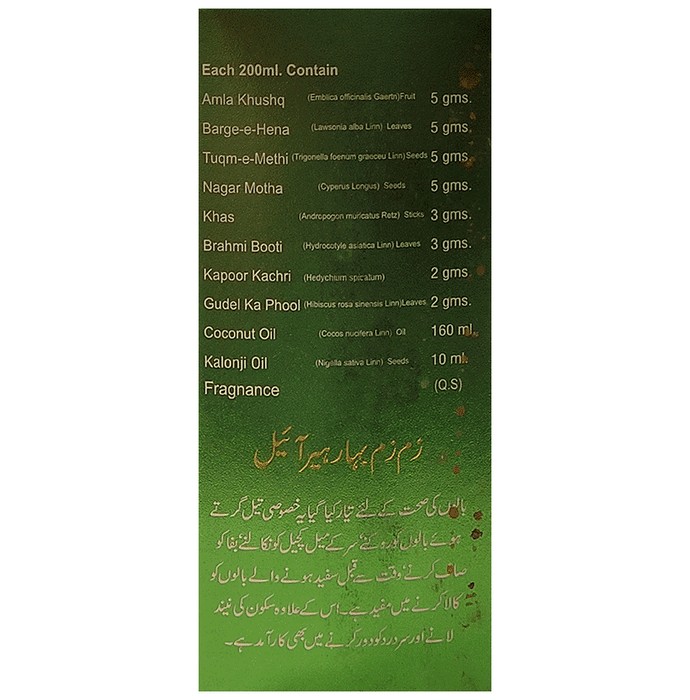 Each 200ml. Contain
Amla Khushq (Emblica officinalis Gaertn)Fruit 5 gms.
Barge-e-Hena (Lawsonia alba Linn) Leaves 5 gms.
Tuqm-e-Methi (Trigonella foenum graoceu Linn)Seeds 5 gms.
Nagar Motha (Cyperus Longus) Seeds 5 gms.
Khas (Andropogon muricatus Retz) Sticks 3 gms.
Brahmi Booti (Hydrocotyle asiatica Linn) Leaves 3 gms.
Kapoor Kachri (Hedychium spicatum) 2 gms.
Gudel Ka Phool (Hibiscus rosa sinensis Linn)Leaves 2 gms.
Coconut Oil (Cocos nucifera Linn) Oil 160 ml.
Kalonji Oil (Nigilla sativa Linn) Seeds 10 ml.
Fragnance (Q.S)
زم زم بہار ہیر آئیل
بالوں کی صحت کے لئے تیار کیا گیا یہ خصوصی تیل گرتے
ہوئے بالوں کو روکنے سر کے میل کچیل کو نکالنے بفا کو
صاف کرنے وقت سے قبل سفید ہونے والے بالوں کو
کالا کرنے میں مفید ہے۔ اس کے علاوہ سکون کی نیند
لانے اور سر درد کو دور کرنے میں بھی کار آمد ہے۔